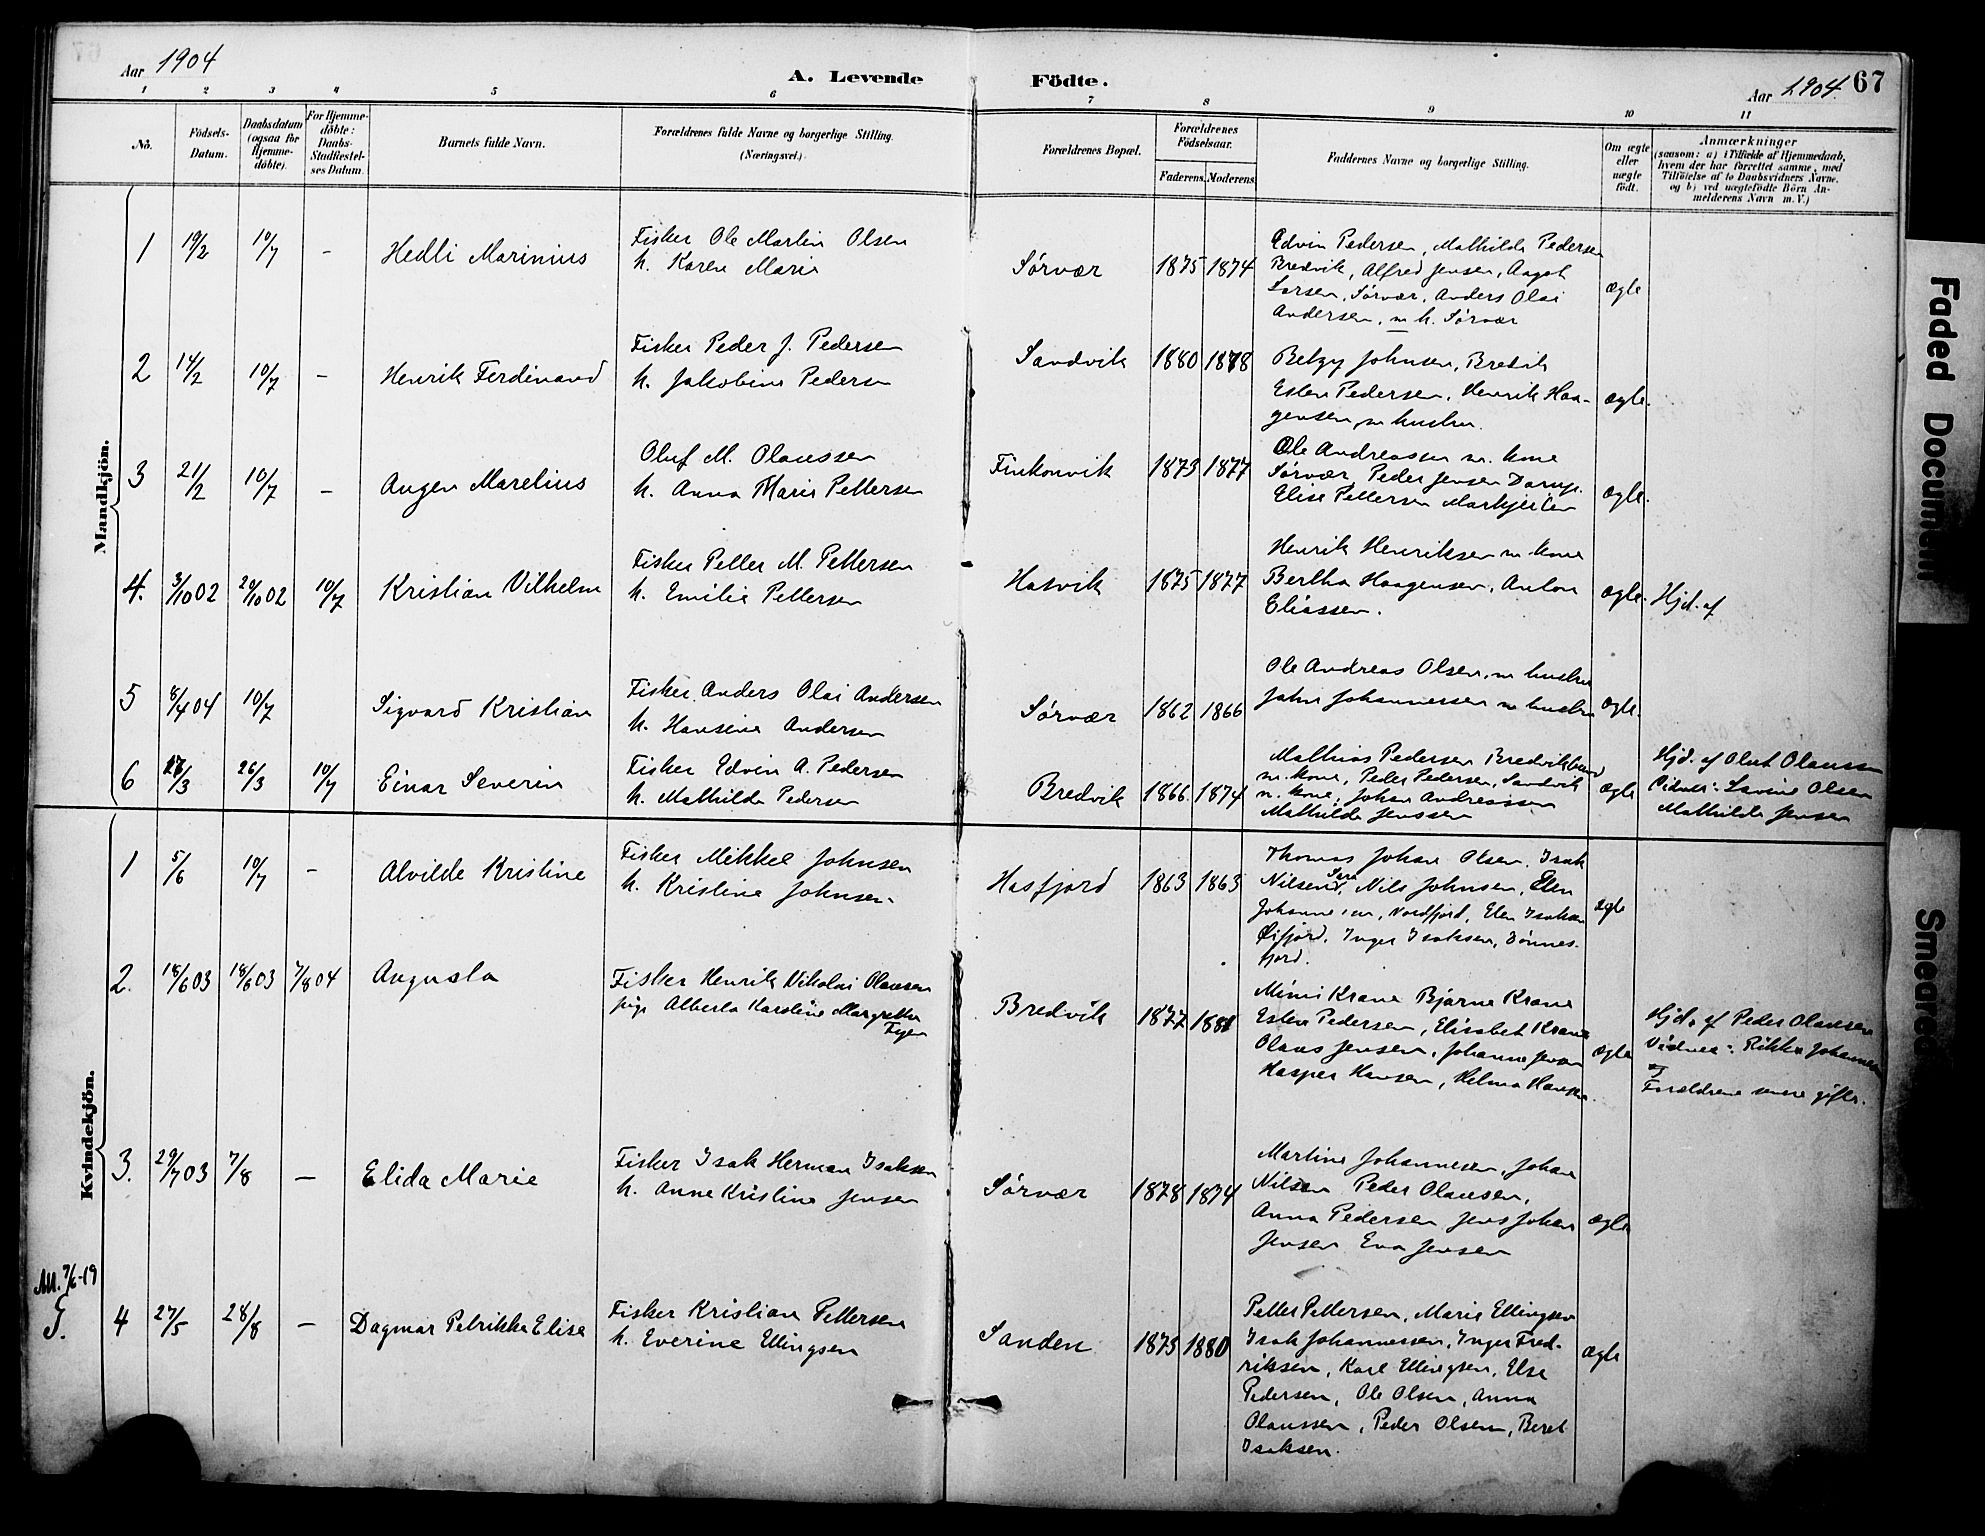 Aar 1904
A. Levende Födte.
Aar 1904. 67
1 2 3 4 5 6 7 8 9 10 11
Nô.
Födsels-
Datum.
Daabsdatum
(ogsaa for
Hjemme-
döbte).
For Hjemme-
döbte:
Daabs-
Stadfæstel-
ses Datum.
Barnets fulde Navn.
Forældrenes fulde Navne og borgerlige Stilling.
(Næringsvei.)
Forældrenes Bopæl.
Forældrenes
Födselsaar.
Faderens. Moderens.
Faddernes Navne og borgerlige Stilling.
Om ægte
eller
uægte
födt.
Anmærkninger
(saasom: a) i Tilfælde af Hjemmedaab,
hvem der har forrettet samme, med
Tilföielse af to Daabsvidners Navne.
og b) ved uægtefödte Börn An-
melderens Navn m.V.)
Mandkjön.
1 19/2 10/7 - Hedli Marinius
Fisker Ole Martin Olsen
h. Karen Marie
Sørvær 1875 1874
Edvin Pedersen, Mathilde Pedersen
Bredvik, Alfred Jensen, Aagot
Larsen, Sørvær, Anders Olai
Andersen, m h. Sørvær
ægte
2 14/2 10/7 - Henrik Ferdinand
Fisker Peder J. Pedersen
h. Jakobine Pedersen
Sandvik 1880 1878
Betzy Johnsen, Bredvik
Esten Pedersen, Henrik Haa-
gensen m hustru.
ægte.
3 21/2 10/7 - Augen Marelius
Oluf M. Olaussen
h. Anna Marie Pettersen
Finkonvik 1873 1877
Ole Andreassen m. kone
Sørvær, Peder Jensen
Elise Pettersen
ægte.
4. 3/10 02 20/10 02 10/7 Kristian Vilhelm
Fisker Petter M. Pettersen
h. Emilie Pettersen
Hasvik 1875 1877
Henrik Henriksen m kone
Bertha Haagensen, Anton
Eliassen.
ægte. Hjd. af
5 8/4 04 10/7 Sigvard Kristian
Fisker Anders Olai Andersen
h. Hansine Andersen
Sørvær 1862 1866
Ole Andreas Olsen, m hustru
John Johannessen m hustru
ægte.
6 /3 26/3 10/7 Einar Severin
Fisker Edvin A. Pedersen
h. Mathilde Pedersen
Bredvik 1866. 1874
Mathias Pedersen
m. kone, Peder Pedersen, Sandvik
m. kone, Johan Andreassen
Mathilde Jenssen
ægte
Hjd. af Oluf Olaussen
Vidner: Lovise Olsen
Mathilde Jensen
Kvindekjön.
1 5/6 10/7 - Alvilde Kristine
Fisker Mikkel Johnsen
h. Kristine Johnsen.
Hasfjord 1863 1863
Thomas Johan Olsen, Isak
Nilsen, Sara Nils Johnsen, Elen
Nordfjord, Elen Isaksen
Øifjord, Inger Isaksen, Dönnes-
fjord.
ægte
2. 18/6 03 18/6 03 7/8 04 Augusta
Fisker Henrik Nikolai Olausen
pige Alberta Karoline Margrethe
Bredvik 1877 1881
Mimi Krane Bjarne Krane
Esten Pedersen, Elisabet Krane
Olaus Jensen, Johanne Jensen
Kasper Hansen, Helma Hansen
ægte
Hjd. af Peder Olausen
Vidner: Rikka Johannesen
Forældrene senere gifte.
3. 29/7 03 7/8 - Elida Marie
Fisker Isak Herman Isaksen
h. Anne Kristine Jensen
Sørvær 1878 1874
Martine Johannesen, Johan
Nilsen Peder Olausen,
Anna Pedersen Jens Johan
Jensen Eva Jensen
ægte
Att. 7/6-19
G. 4 27/5 28/8 - Dagmar Petrikke Elise
Fisker Kristian Pettersen
h. Everine Ellingsen
Sanden 1873 1880
Petter Pettersen, Marie Ellingsen
Isak Johannessen, Inger Fred-
riksen, Karl Ellingsen, Else
Pedersen, Ole Olsen, Anna
Olaussen, Peder Olsen, Beret
Isaksen.
ægte
Faded Document
Smeared